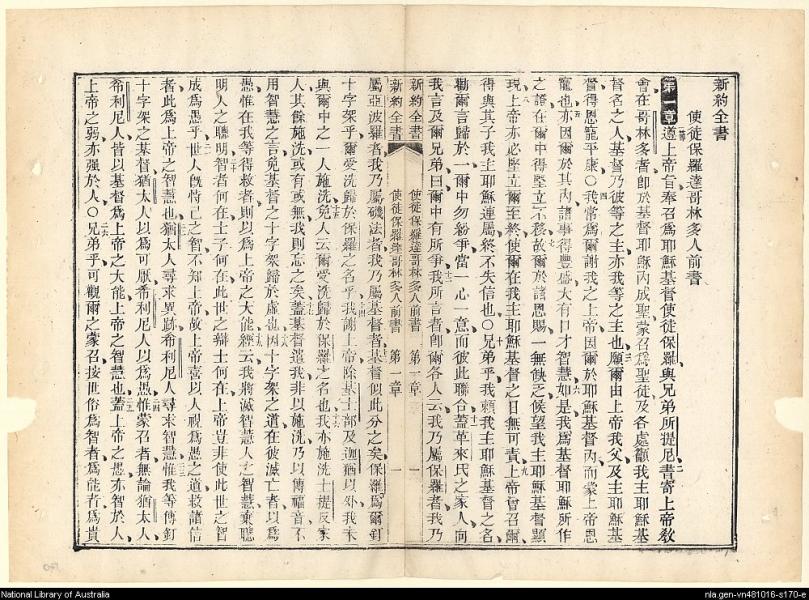 新約全書
使徒保羅達哥林多人前書
第一章 遵上帝旨奉召爲耶穌基督使徒保羅與兄弟所提尼書寄上帝敎
會在哥林多者卽於基督耶穌內成聖蒙召爲聖徒及各處籲我主耶穌基
督名之人基督乃彼等之主亦我等之主也願爾由上帝我父及主耶穌基
督得恩寵平康○我常爲爾謝我之上帝因爾於耶穌基督內而蒙上帝恩
寵也亦因爾於其內諸事得豐盛大有口才智慧如是我爲基督耶穌所作
之證在爾中得堅立不移故爾於諸恩賜一無缺乏候望我主耶穌基督顯
現上帝亦必堅立爾至終使爾在我主耶穌基督之日無可責上帝曾召爾
得與其子我主耶穌連屬終不失信也○兄弟乎我賴我主耶穌基督之名
勸爾言歸於一爾中勿紛爭當一心一意而彼此聯合蓋革來氏之家人向
我言及爾兄弟曰爾中有所爭我所言者卽爾各人云我乃屬保羅者我乃
新約全書 使徒保羅達哥林多人前書 第一章 一
新約全書 使徒保羅達哥林多人前書 第一章 一
屬亞波羅者我乃屬磯法者我乃屬基督者基督似此分之矣保羅爲爾釘
十字架乎爾受洗歸於保羅之名乎我謝上帝除基士部及迦猶以外我未
與爾中之一人施洗免人云爾受洗歸於保羅之名也我亦施洗士提反家
人其餘施洗或有或無我則忘之矣蓋基督遣我非以施洗乃以傳福音不
用智慧之言免基督之十字架歸於虛也因十字架之道在彼滅亡者以爲
愚惟在我等得救者則以爲上帝之大能經云我將滅智慧人之智慧棄聰
明人之聰明智者何在士子何在此世之辯士何在上帝豈非使此世之智
成爲愚乎世人旣恃己之智不知上帝故上帝喜以人視爲愚之道救諸信
者此爲上帝之智慧也猶太人尋求異跡希利尼人尋求智慧惟我等傳釘
十字架之基督猶太人以爲可厭希利尼人以爲愚惟蒙召者無論猶太人
希利尼人皆以基督爲上帝之大能上帝之智慧也蓋上帝之愚亦智於人
上帝之弱亦强於人○兄弟乎可觀爾之蒙召按世俗爲智者爲能者爲貴
National Library of Australia
nla.gen-vn481016-s170-e